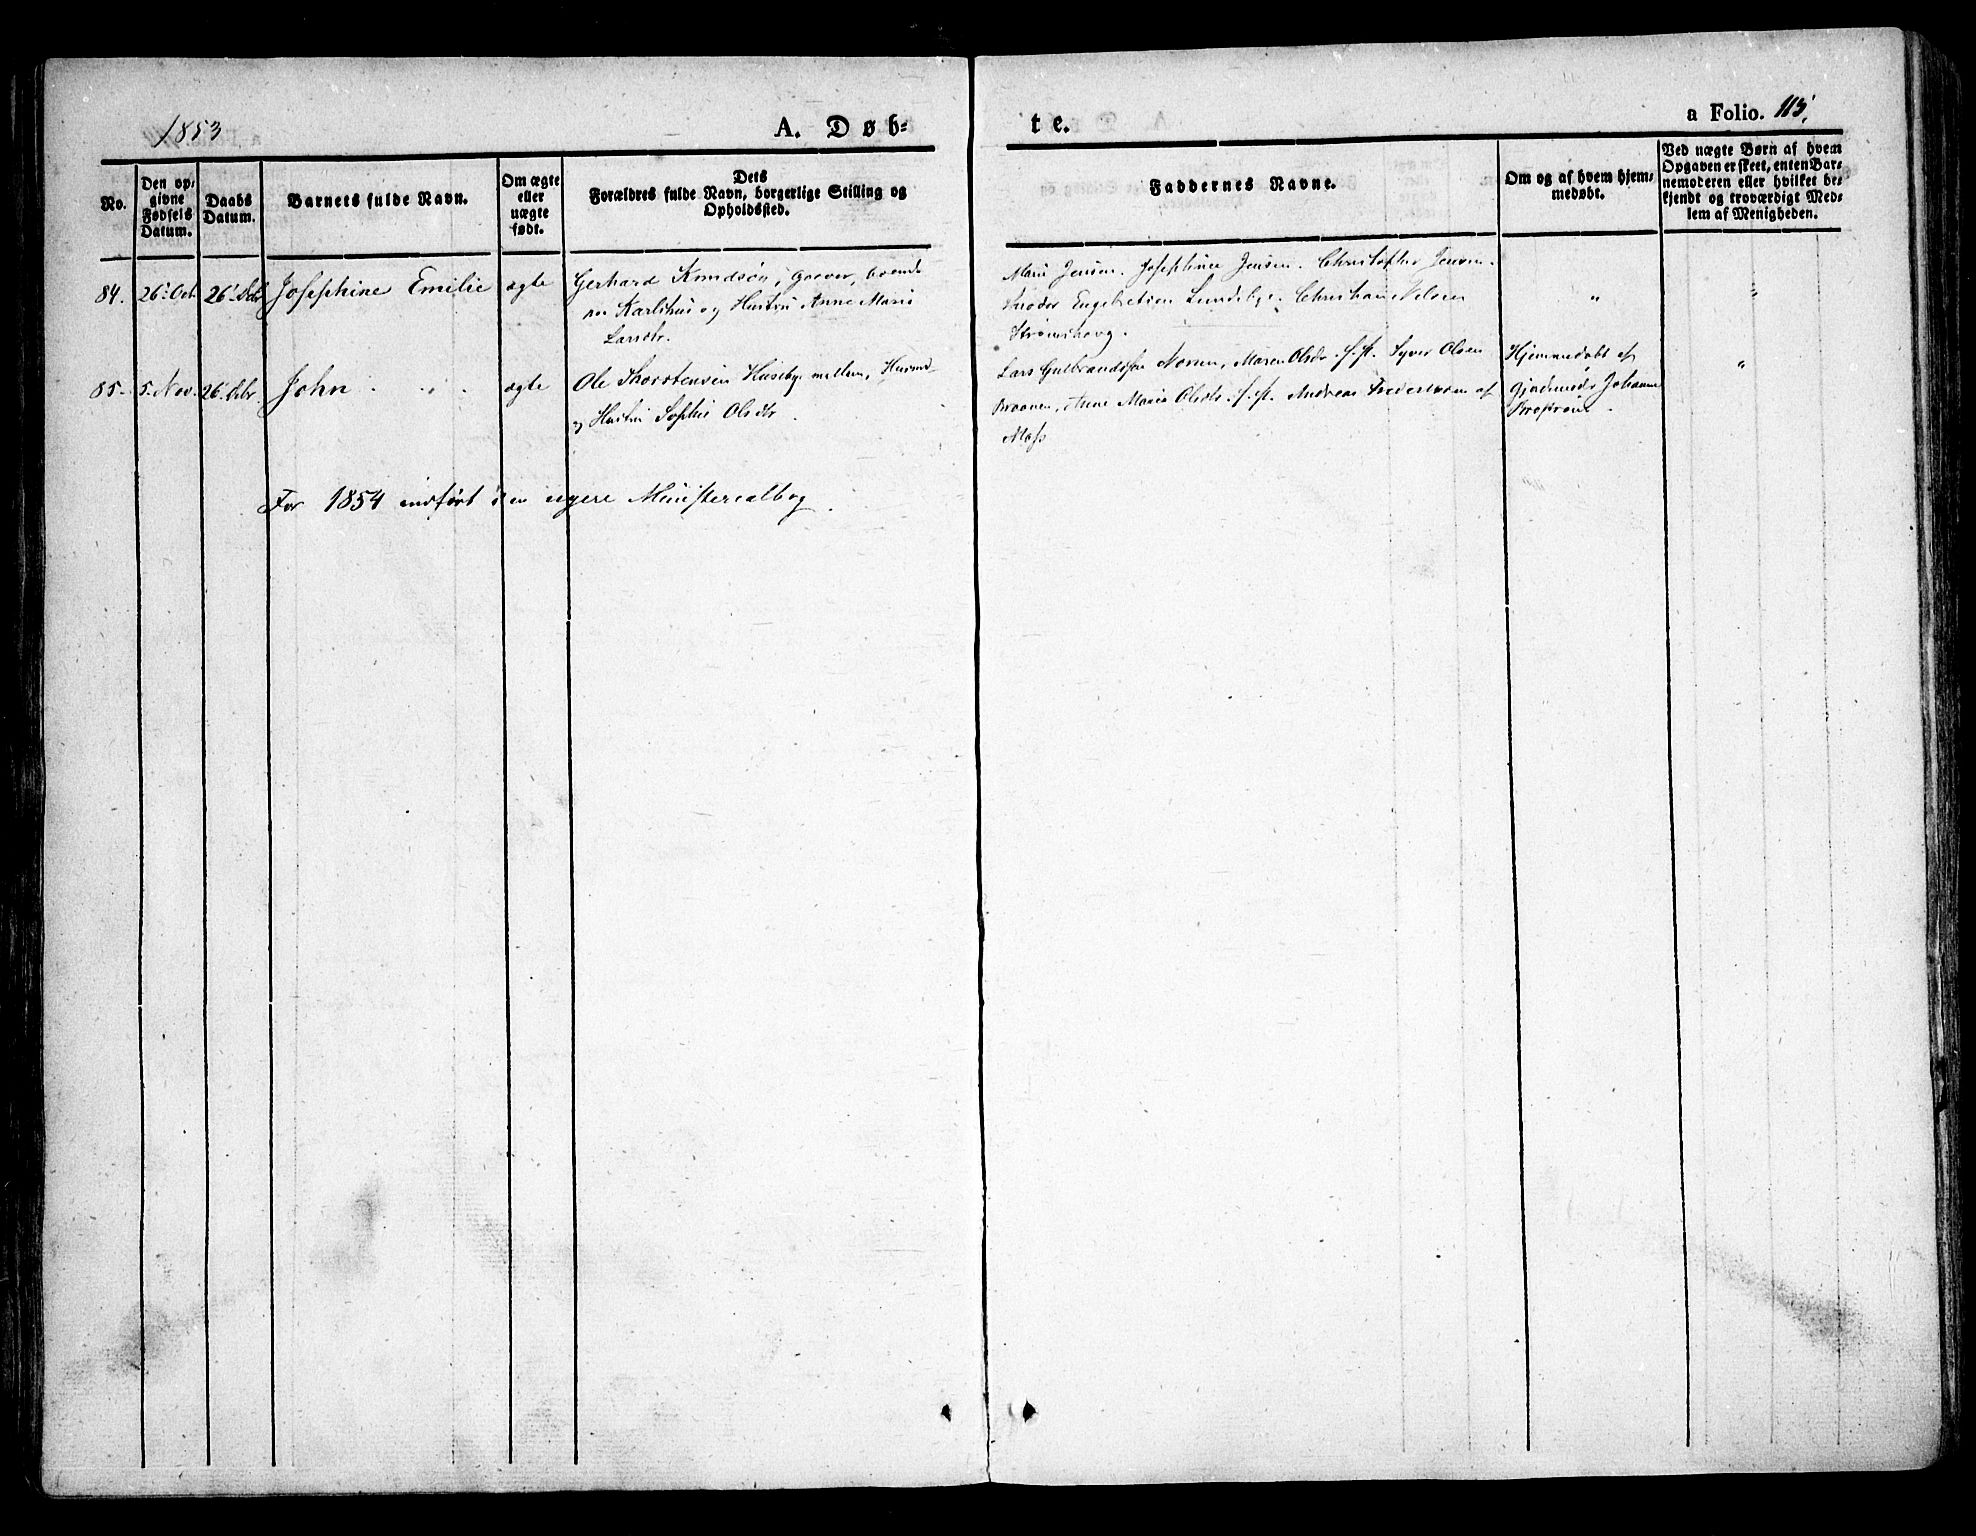 1853
A. Døb=
te.
a Folio. 115.
No.
Den op=
givne
Fødsels
Datum.
Daabs
Datum.
Barnets fulde Navn.
Om ægte
eller
uægte
født.
Dets
Forældres fulde Navn, borgerlige Stilling og
Opholdssted.
Faddernes Navne.
Om og af hvem hjem=
medøbt.
Ved uægte Børn af hvem
Opgaven er skeet, enten Bar=
nemoderen eller hvilket be=
kjendt og troværdigt Med=
lem af Menigheden.
84. 26 Oct. 26 Dcbr. Josephine Emilie ægte Gerhard Knudsøn, boende
Karlshus og Hustru Anne Maria
Larsdtr.
Marie Jensen. Josephine Jensen. Christoffer Jensen.
Engebretsen Lundebye. Christian Nelsen
"
"
85. 5 Nov. 26 Dcbr. John ægte Ole Thorstensen Husebye mellem, Husmd
og Hustru Sophie Olsdtr.
Lars Gulbrandsen Noren, Maren Olsdr. s. st. Syver Olsen
Braanen, Anne Maria Olsdr. s. st. Andreas Pedersen af
Moss
Hjemmedøbt af
Gjordmodr Johanne
"
For 1854 indført i en nyere Ministerialbog.